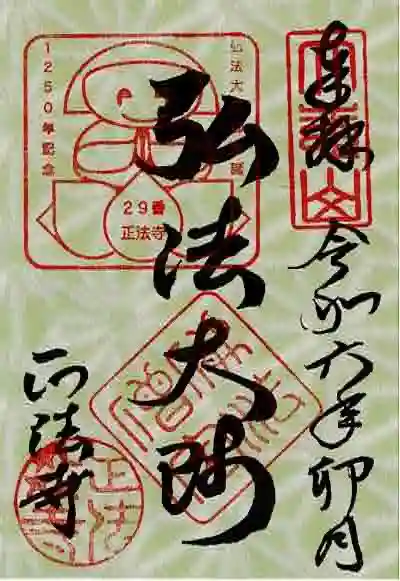 奉拝
令和六年卯月
弘法大師
弘法大
1250年記念
29番
正法寺
正法寺
正法